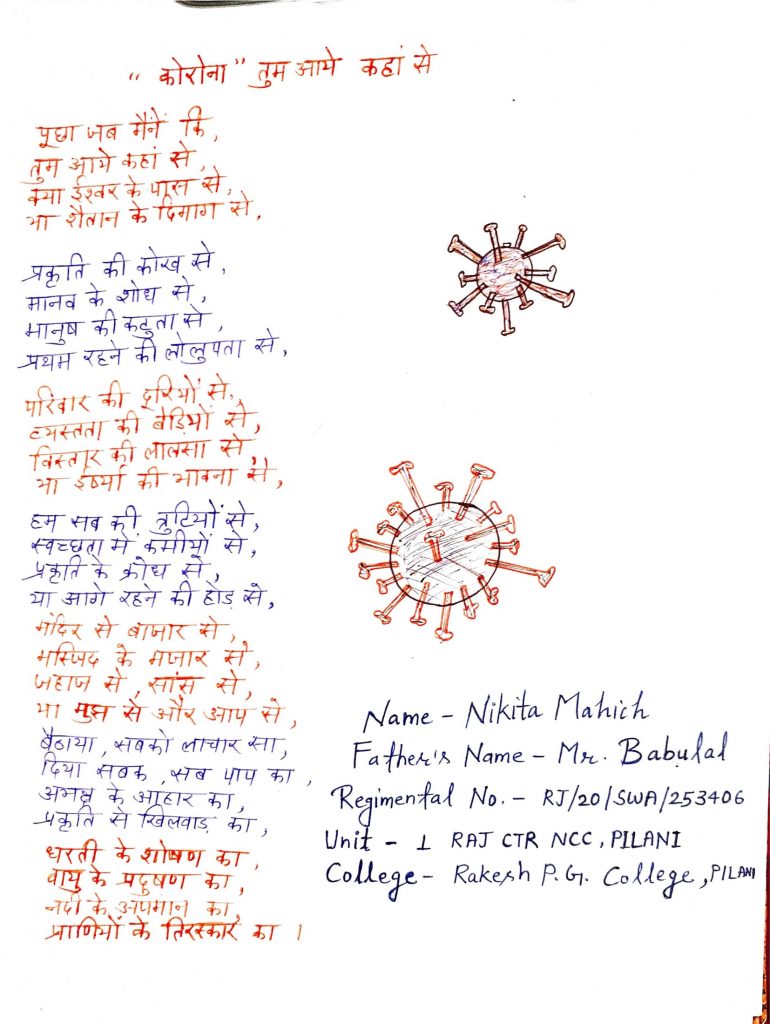 "कोरोना" तुम आये कहां से
पूछा जब मैंनें कि,
तुम आये कहां से,
क्या ईश्वर के पास से,
या शैतान के दिमाग से,
प्रकृति की कोख से,
मानव के शोध से,
मानुष की कटुता से,
प्रथम रहने की लोलुपता से,
परिवार की दूरियों से,
व्यस्तता की बेड़ियों से,
विस्तार की लालसा से,
या ईर्ष्या की भावना से,
हम सब की त्रुटियों से,
स्वच्छता में कमीयों से,
प्रकृति के क्रोध से,
या आगे रहने की होड़ से,
मंदिर से बाजार से,
मस्जिद के मजार से,
जहाज से, सांस से,
या मुझ से और आप से,
बैठाया, सबको लाचार सा,
दिया सबक, सब पाप का,
अभक्ष के आहार का,
प्रकृति से खिलवाड़ का,
धरती के शोषण का,
वायु के प्रदूषण का,
नदी के अपमान का,
प्राणियों के तिरस्कार का ।
Name - Nikita Mahich
Father's Name - Mr. Babulal
Regimental No. - RJ/20/SWA/253406
Unit - 1 RAJ CTR NCC, PILANI
College - Rakesh P.G. College, PILANI